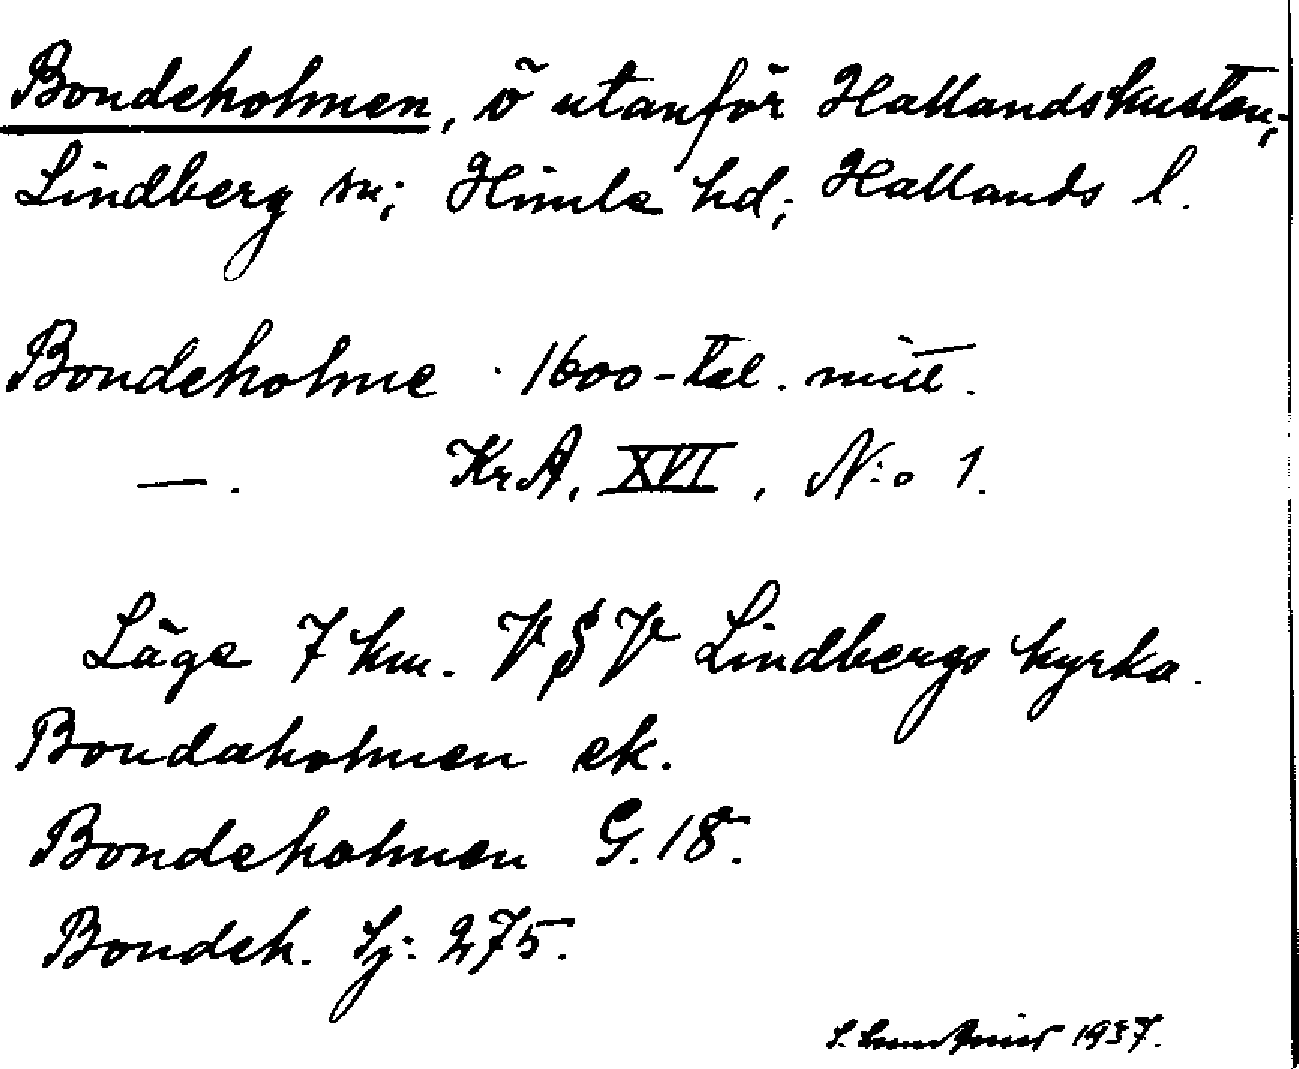 Bondeholmen, ö utanför Hallandskusten;
Lindberg sn; Himle hd; Hallands l.
Bondeholme . 1600-tal. mitt.
— . KrA, XVI, N:o 1.
Läge 7 km. V S V Lindbergs kyrka.
Bondaholmen ek.
Bondeholmen G. 18.
Bondeh. Sj: 275.
S. 1937.